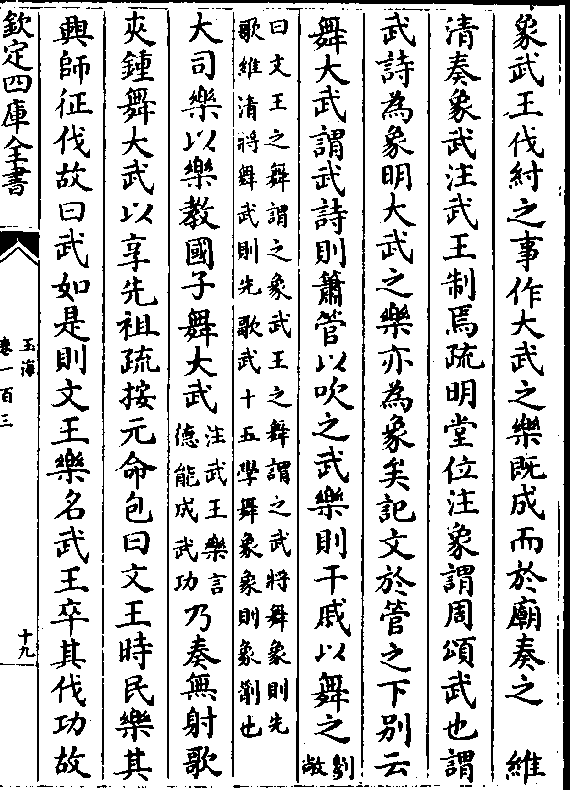 象武王伐紂之事作大武之樂既成而於廟奏之　維
清奏象武注武王制焉疏明堂位注象謂周頌武也謂
武詩為象明大武之樂亦為象矣記文於管之下别云
舞大武謂武詩則簫管以吹之武樂則干戚以舞之劉敞
曰文王之舞謂之象武王之舞謂之武將舞象則先
歌維清將舞武則先歌武十五學舞象象則象箾也
大司樂以樂教國子舞大武注武王樂言德能成武功乃奏無射歌
夾鍾舞大武以享先祖疏按元命包曰文王時民樂其
興師征伐故曰武如是則文王樂名武王卒其伐功故
欽定四庫全書
玉海
卷一百三
十九